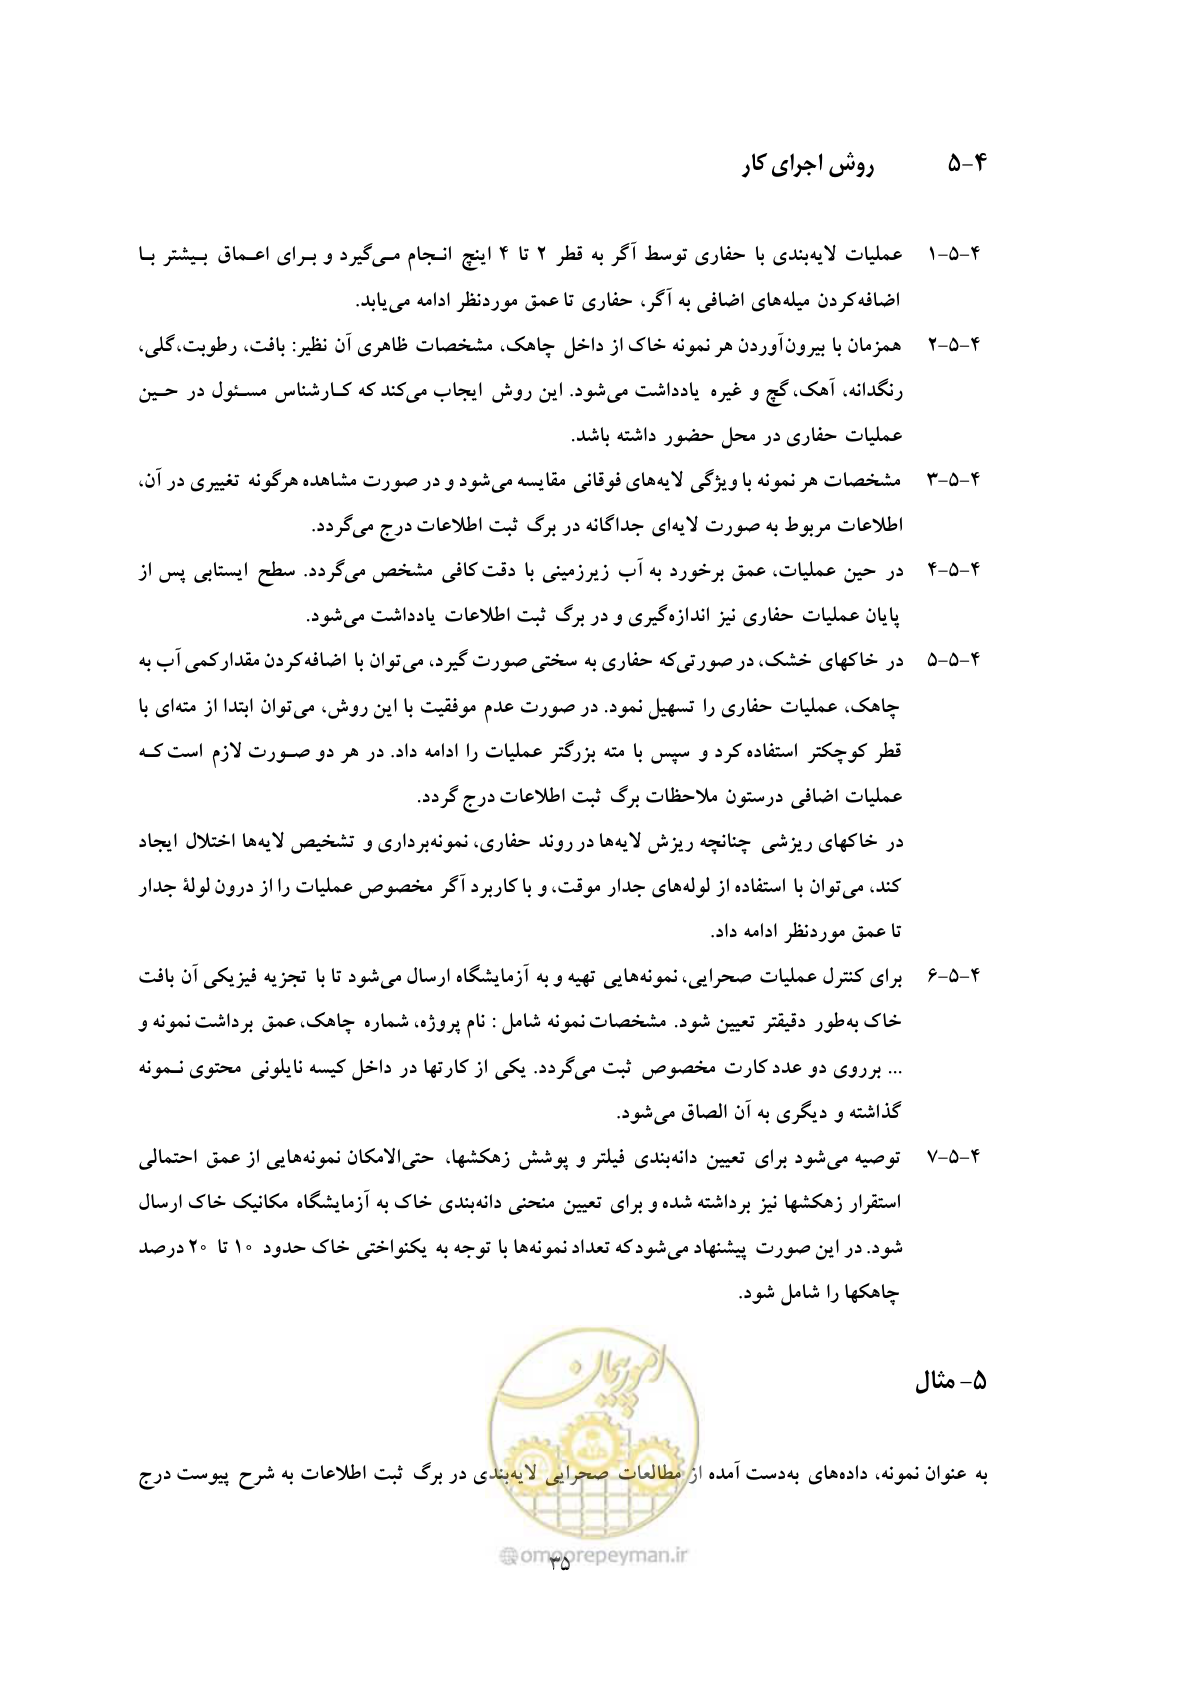 ۴-۵ روش اجرای کار
۴-۵-۱ عملیات لایه‌بندی با حفاری توسط آگر به قطر ۲ تا ۴ اینچ انجام می‌گیرد و برای اعماق بیشتر با
اضافه‌کردن میله‌های اضافی به آگر، حفاری تا عمق موردنظر ادامه می‌یابد.
۴-۵-۲ همزمان با بیرون‌آوردن هر نمونه خاک از داخل چاهک، مشخصات ظاهری آن نظیر: بافت، رطوبت،گلی،
رنگدانه، آهک، گچ و غیره یادداشت می‌شود. این روش ایجاب می‌کند که کارشناس مسئول در حین
عملیات حفاری در محل حضور داشته باشد.
۴-۵-۳ مشخصات هر نمونه با ویژگی لایه‌های فوقانی مقایسه می‌شود و در صورت مشاهده هرگونه تغییری در آن،
اطلاعات مربوط به صورت لایه‌ای جداگانه در برگ ثبت اطلاعات درج می‌گردد.
۴-۵-۴ در حین عملیات، عمق برخورد به آب زیرزمینی با دقت کافی مشخص می‌گردد. سطح ایستابی پس از
پایان عملیات حفاری نیز اندازه‌گیری و در برگ ثبت اطلاعات یادداشت می‌شود.
۴-۵-۵ در خاکهای خشک، در صورتی‌که حفاری به سختی صورت گیرد، می‌توان با اضافه‌کردن مقدارکمی آب به
چاهک، عملیات حفاری را تسهیل نمود. در صورت عدم موفقیت با این روش، می‌توان ابتدا از مته‌ای با
قطر کوچکتر استفاده کرد و سپس با مته بزرگتر عملیات را ادامه داد. در هر دو صورت لازم است که
عملیات اضافی درستون ملاحظات برگ ثبت اطلاعات درج گردد.
در خاکهای ریزشی چنانچه ریزش لایه‌ها در روند حفاری، نمونه‌برداری و تشخیص لایه‌ها اختلال ایجاد
کند، می‌توان با استفاده از لوله‌های جدار موقت، و با کاربرد آگر مخصوص عملیات را از درون لولهٔ جدار
تا عمق موردنظر ادامه داد.
۴-۵-۶ برای کنترل عملیات صحرایی، نمونه‌هایی تهیه و به آزمایشگاه ارسال می‌شود تا با تجزیه فیزیکی آن بافت
خاک به‌طور دقیقتر تعیین شود. مشخصات نمونه شامل : نام پروژه، شماره چاهک، عمق برداشت نمونه و
... برروی دو عدد کارت مخصوص ثبت می‌گردد. یکی از کارتها در داخل کیسه نایلونی محتوی نمونه
گذاشته و دیگری به آن الصاق می‌شود.
۴-۵-۷ توصیه می‌شود برای تعیین دانه‌بندی فیلتر و پوشش زهکشها، حتی‌الامکان نمونه‌هایی از عمق احتمالی
استقرار زهکشها نیز برداشته شده و برای تعیین منحنی دانه‌بندی خاک به آزمایشگاه مکانیک خاک ارسال
شود. در این صورت پیشنهاد می‌شود که تعداد نمونه‌ها با توجه به یکنواختی خاک حدود ۱۰ تا ۲۰ درصد
چاهکها را شامل شود.
۵- مثال
امور پیمان
به عنوان نمونه، داده‌های به‌دست آمده از مطالعات صحرایی لایه‌بندی در برگ ثبت اطلاعات به شرح پیوست درج
@omoorepeyman.ir
۳۵